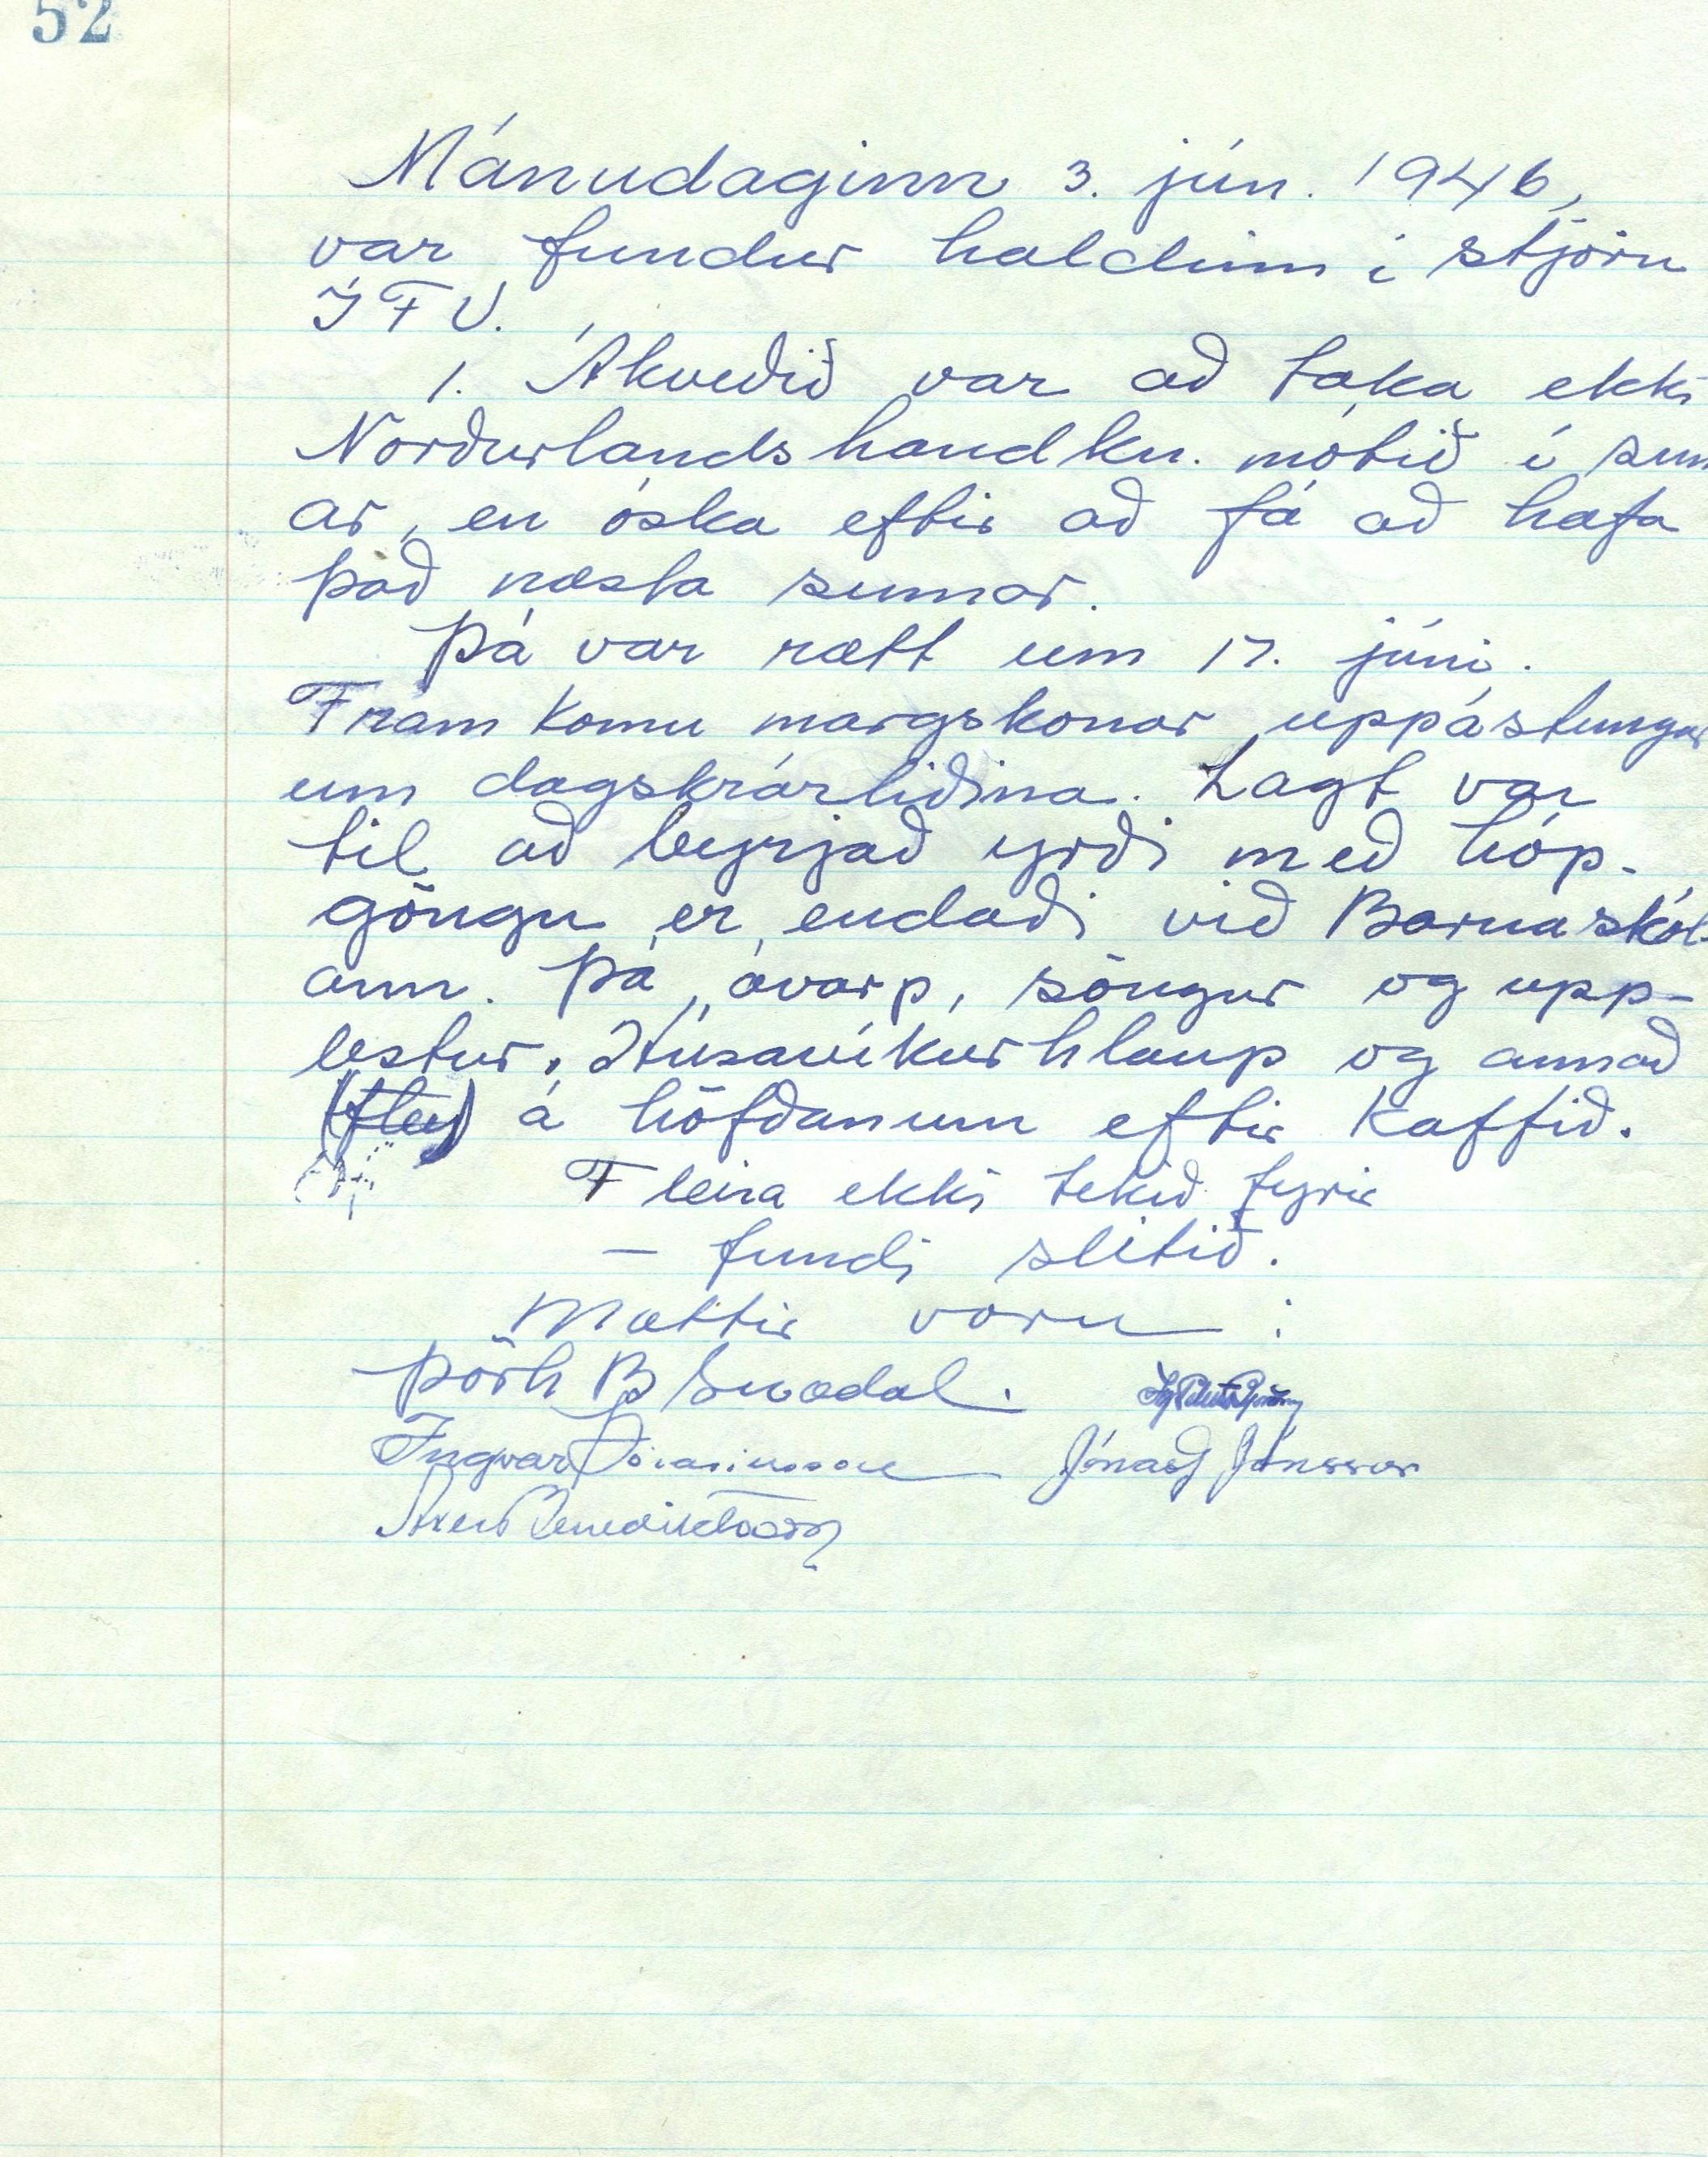 52
Mánudaginn 3. jún. 1946,
var fundur haldinn í stjórn
Í F V.
1. Ákveðið var að taka ekki
Norðurlandshandkn. mótið í sum
ar, en óska eftir að fá að hafa
það næsta sumar.
Þá var rætt um 17. júní.
Fram komu margskonar uppástungur
um dagskrárliðina. Lagt var
til að byrjað yrði með hóp-
göngu er endaði við Barnaskól-
ann. Þá ávarp, söngur og upp-
lestur. Húsavíkurhlaup og annað
á höfðanum eftir kaffið.
Fleira ekki tekið fyrir
— fundi slitið.
Mættir voru :
Þórh B Snædal.
Ingvar Þórarinsson Jónas G Jónsson
Axel Benediktsson